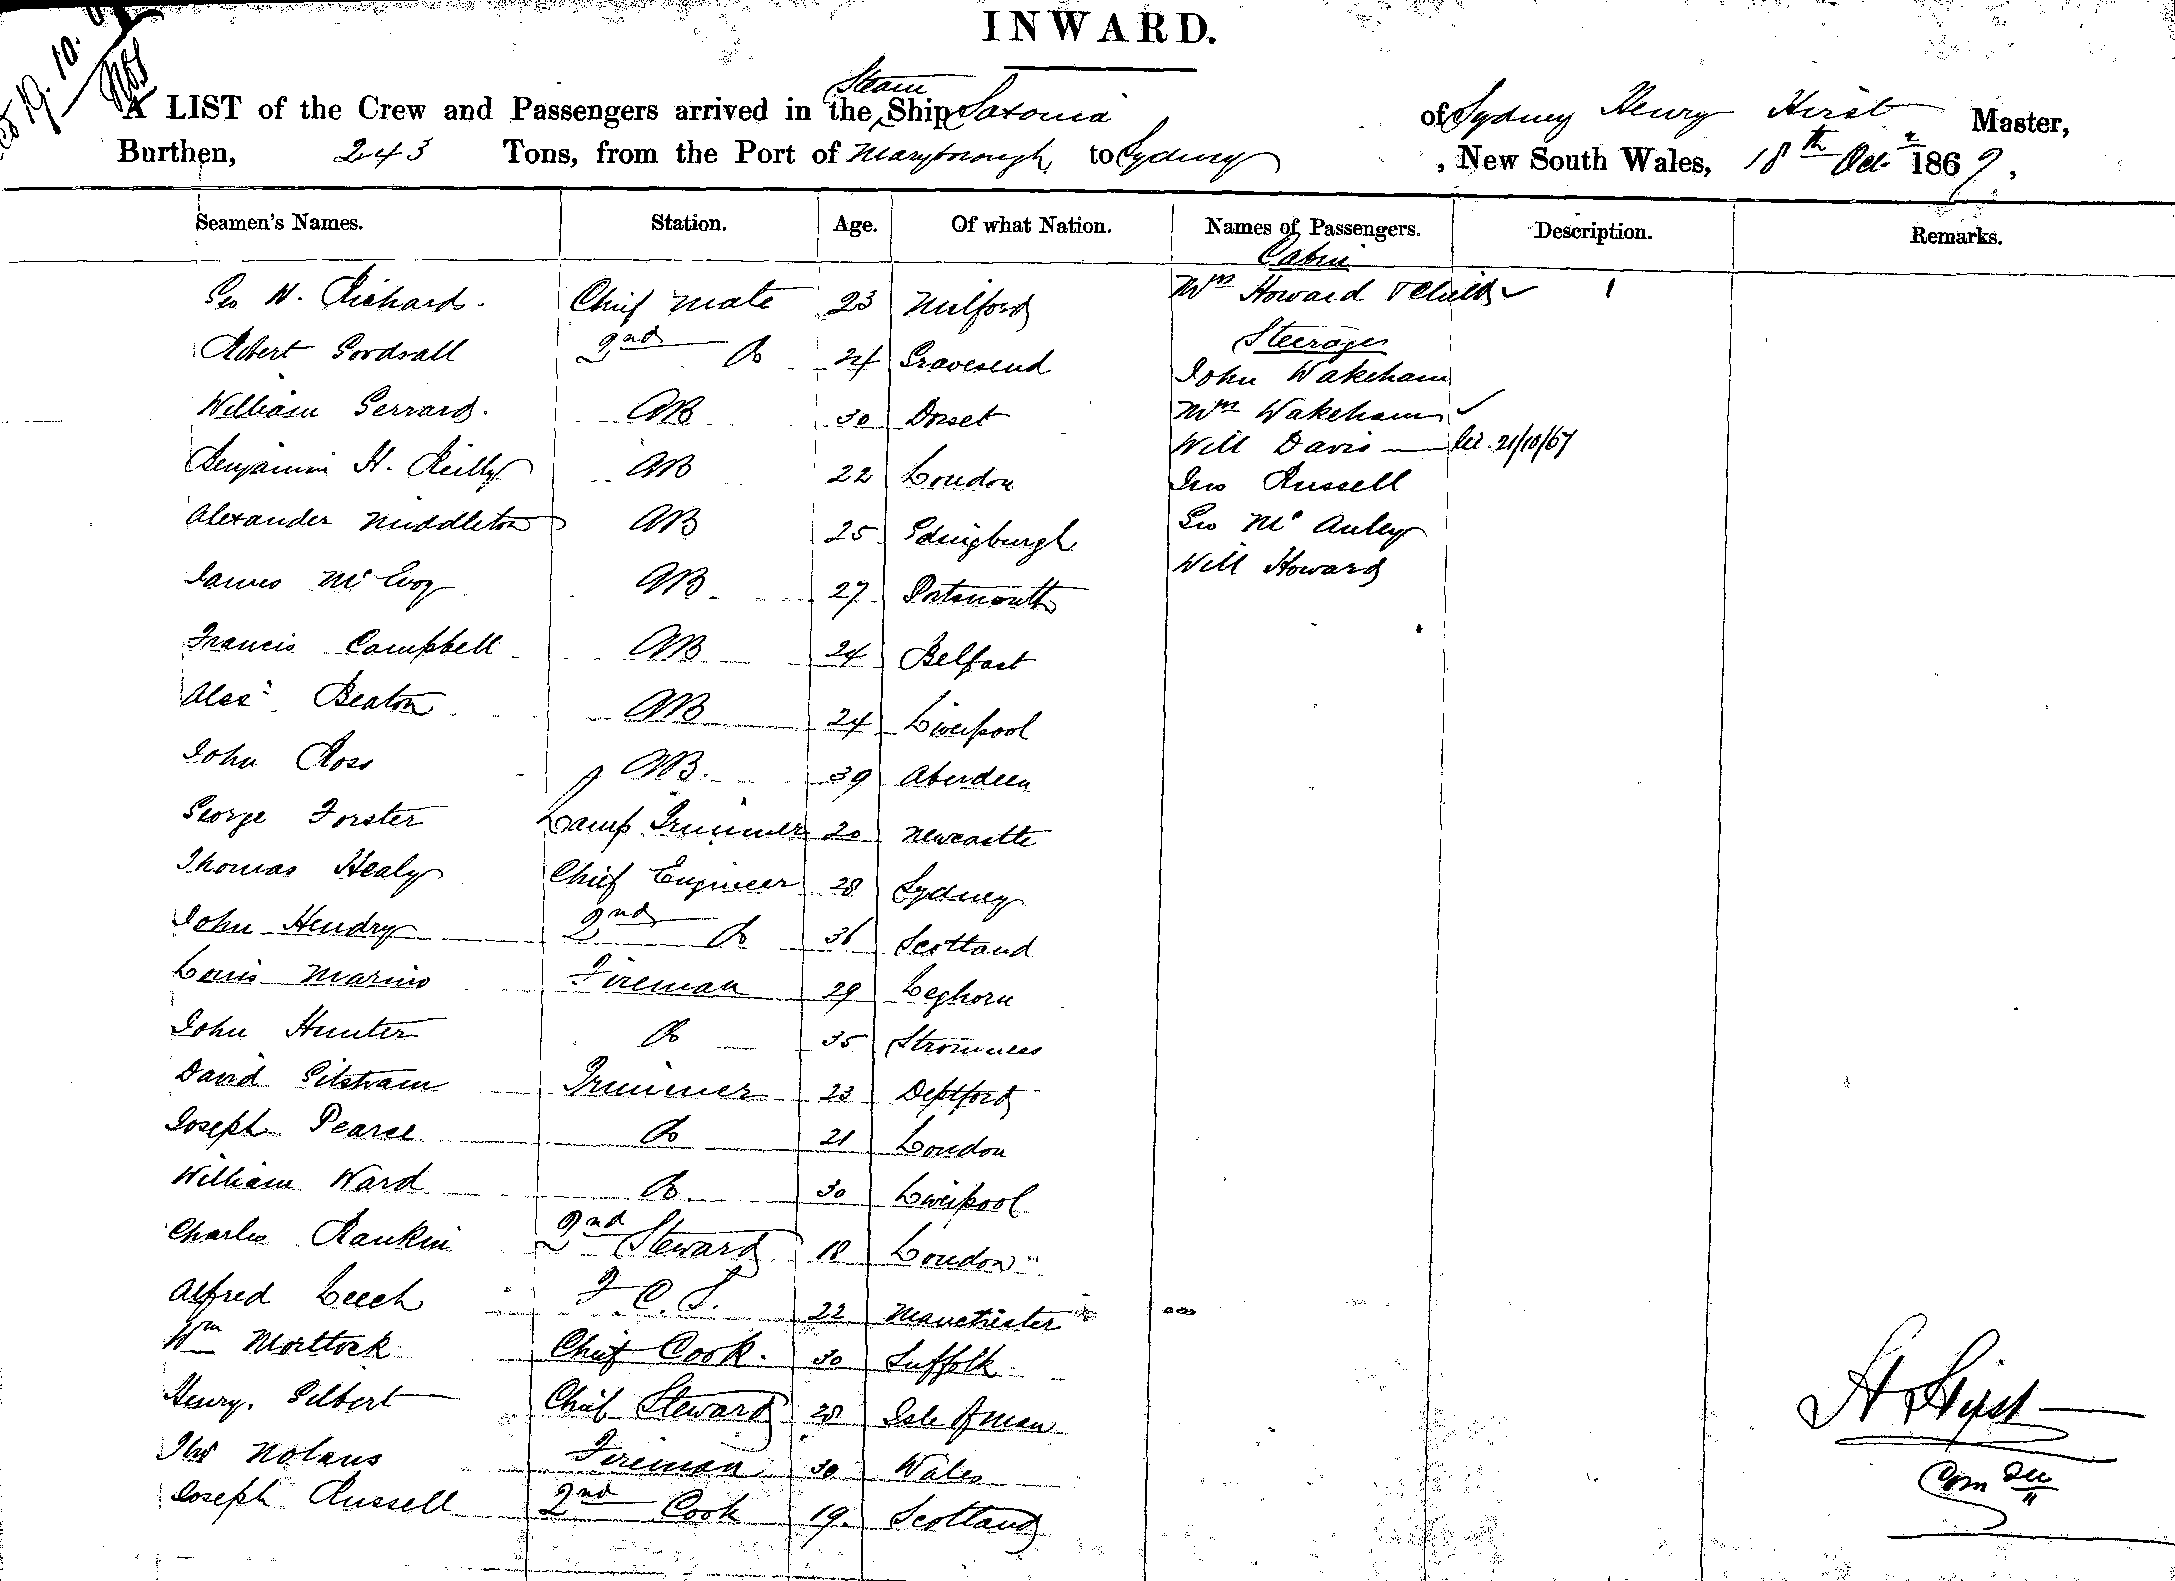 INWARD.
19. 10.
Steam
A LIST of the Crew and Passengers arrived in the Ship Saxonia of Sydney Henry Hirst Master,
Burthen, 243 Tons, from the Port of Maryborough to Sydney, New South Wales, 18th Oct. 1867.
Seamen's Names. Station. Age. Of what Nation. Names of Passengers. Description. Remarks.
Cabin
Geo W. Richard. Chief Mate 23 Milford Mrs Howard & Child 1
Steerage
Robert Goodsall 2nd Do 24 Gravesend John Wakeham
William Gerrard. AB 30 Dorset Mrs Wakeham
Will Davis 21/10/67
Benjamin H. Reilly AB 22 London Jno Russell
Alexander Middleton AB 25 Edingburgh Geo Mc Auley
James Mc Evoy AB 27 Portsmouth Will Howard
Francis Campbell AB 24 Belfast
Alexr Beaton AB 24 Liverpool
John Ross AB. 39 Aberdeen
George Forster Lamp Trimmer 20 Newcastle
Thomas Healy Chief Engineer 28 Sydney
John Hendry 2nd Do 36 Scotland
Louis Marino Fireman 29 Leghorn
John Hunter Do 35 Stromness
David Gilsham Trimmer 23 Deptford
Joseph Pearce Do 21 London
William Ward Do 30 Liverpool
Charles Rankin 2nd Steward 18 London
Alfred Leech F. C. S. 22 Manchester
Wm Morttock Chief Cook. 30 Suffolk
Henry. Gilbert Chief Steward 28 Isle of Man
Nolans Fireman 30 Wales
Joseph Russell 2nd Cook 19. Scotland
H Hirst
Comdr